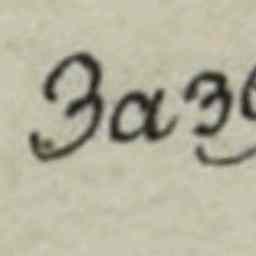 Заз